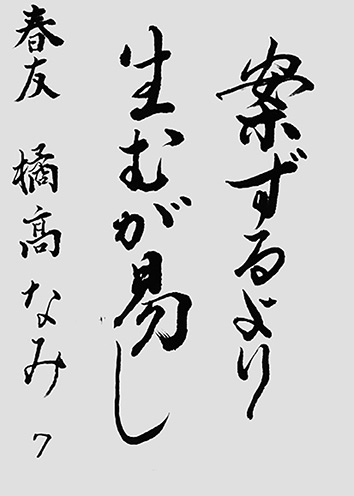 案ずるより
生むが易し
春友 橘高なみ 7